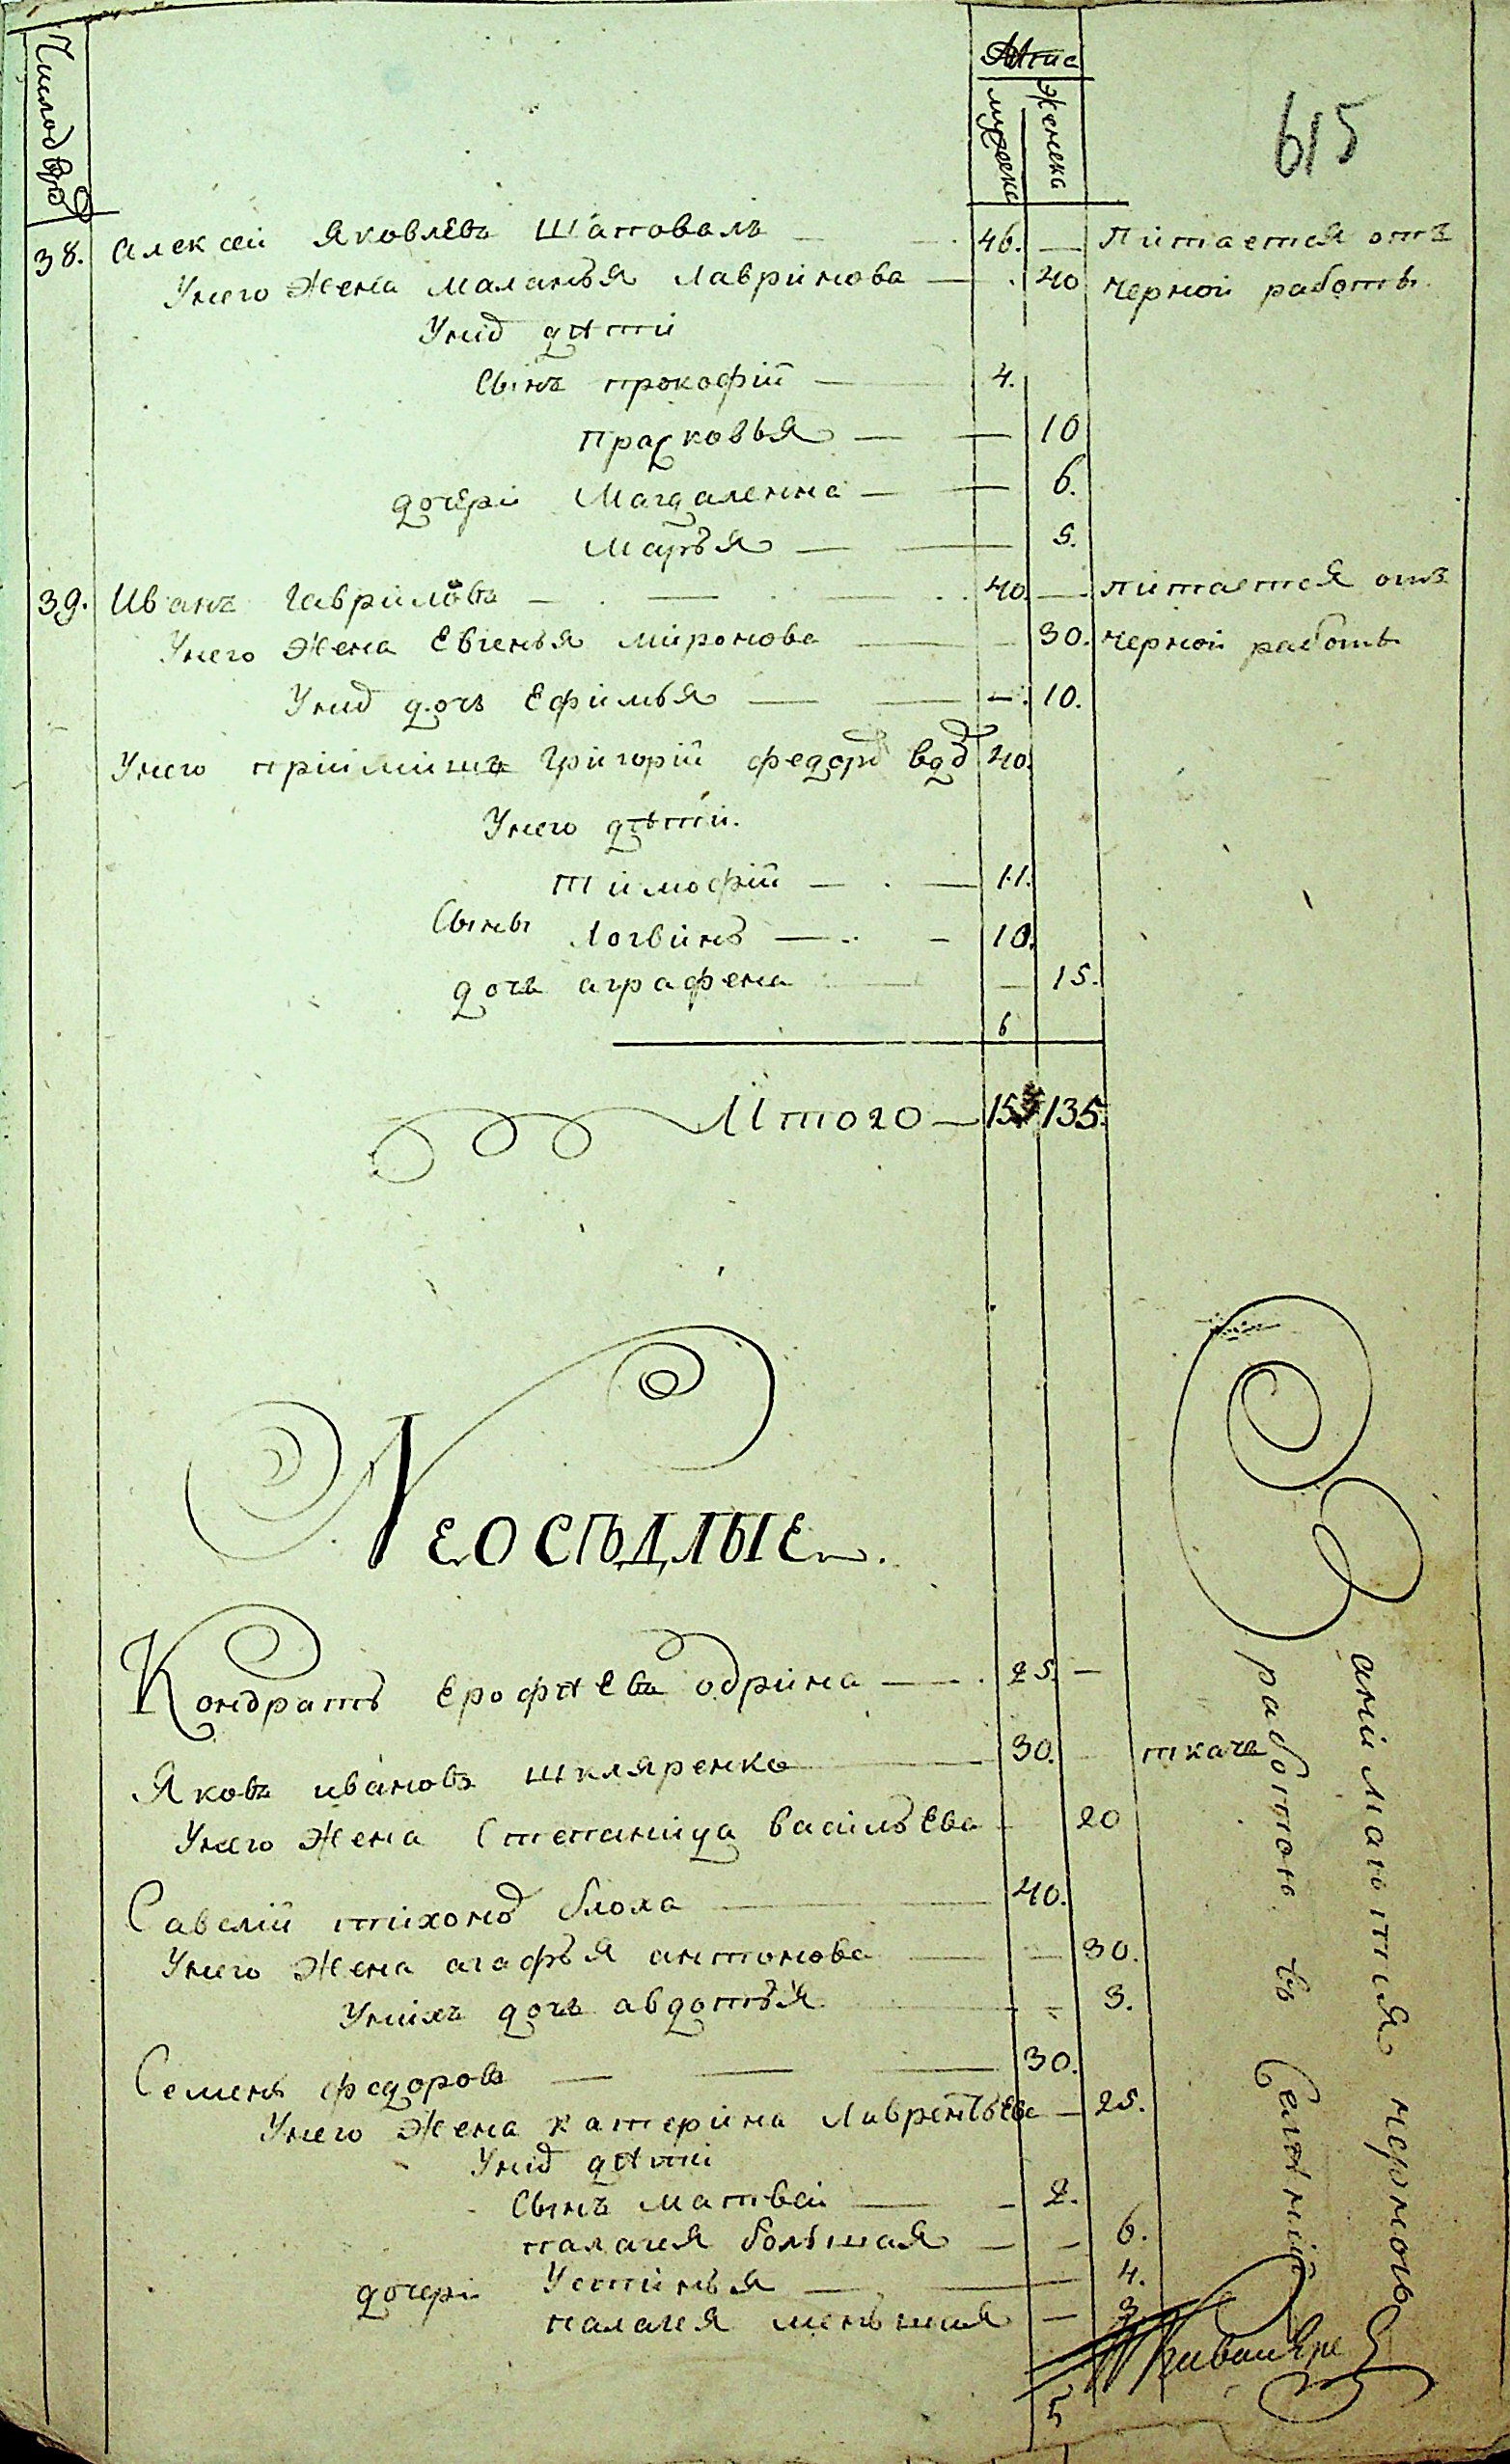 Число двр
Лета
мужеска
женска
615
38. Алексей Яковлевъ Шаповалъ 46. питается отъ
Унего жена Маланья Лавринова 40 черной работы.
Унихъ дѣти
Сынъ прокофій 4.
прасковья 10
дочери Магдаленна 6.
Марья 5.
39. Иванъ Гавриловъ 40. питается отъ
Унего жена Евгенья Миронова 30. черной работы
Унихъ дочь Ефимья 10.
Унего приймишъ Григорій федоров вдв 40.
Унего дѣти.
Тимофій 11.
Сыны Логвинъ 10.
дочь аграфена 15.
6
Итого 153 135.
Неоседлые.
Кондратъ Ерофѣевъ одрина 25.
Яковъ ивановъ шкляренко 30. ткачь
Унего жена Степанида Васильева 20
Савелій тихонов блоха 40.
Унего жена агафья антонова 30.
Унихъ дочь авдотья 3.
Семенъ федоровъ 30.
Унего жена катерина Лаврентьева 25.
Унихъ дѣти
Сынъ матвей 2.
палагея большая 6.
дочери Устинья 4.
палагея меньшая 3.
занимаются черною
работою въ Селенніи
5